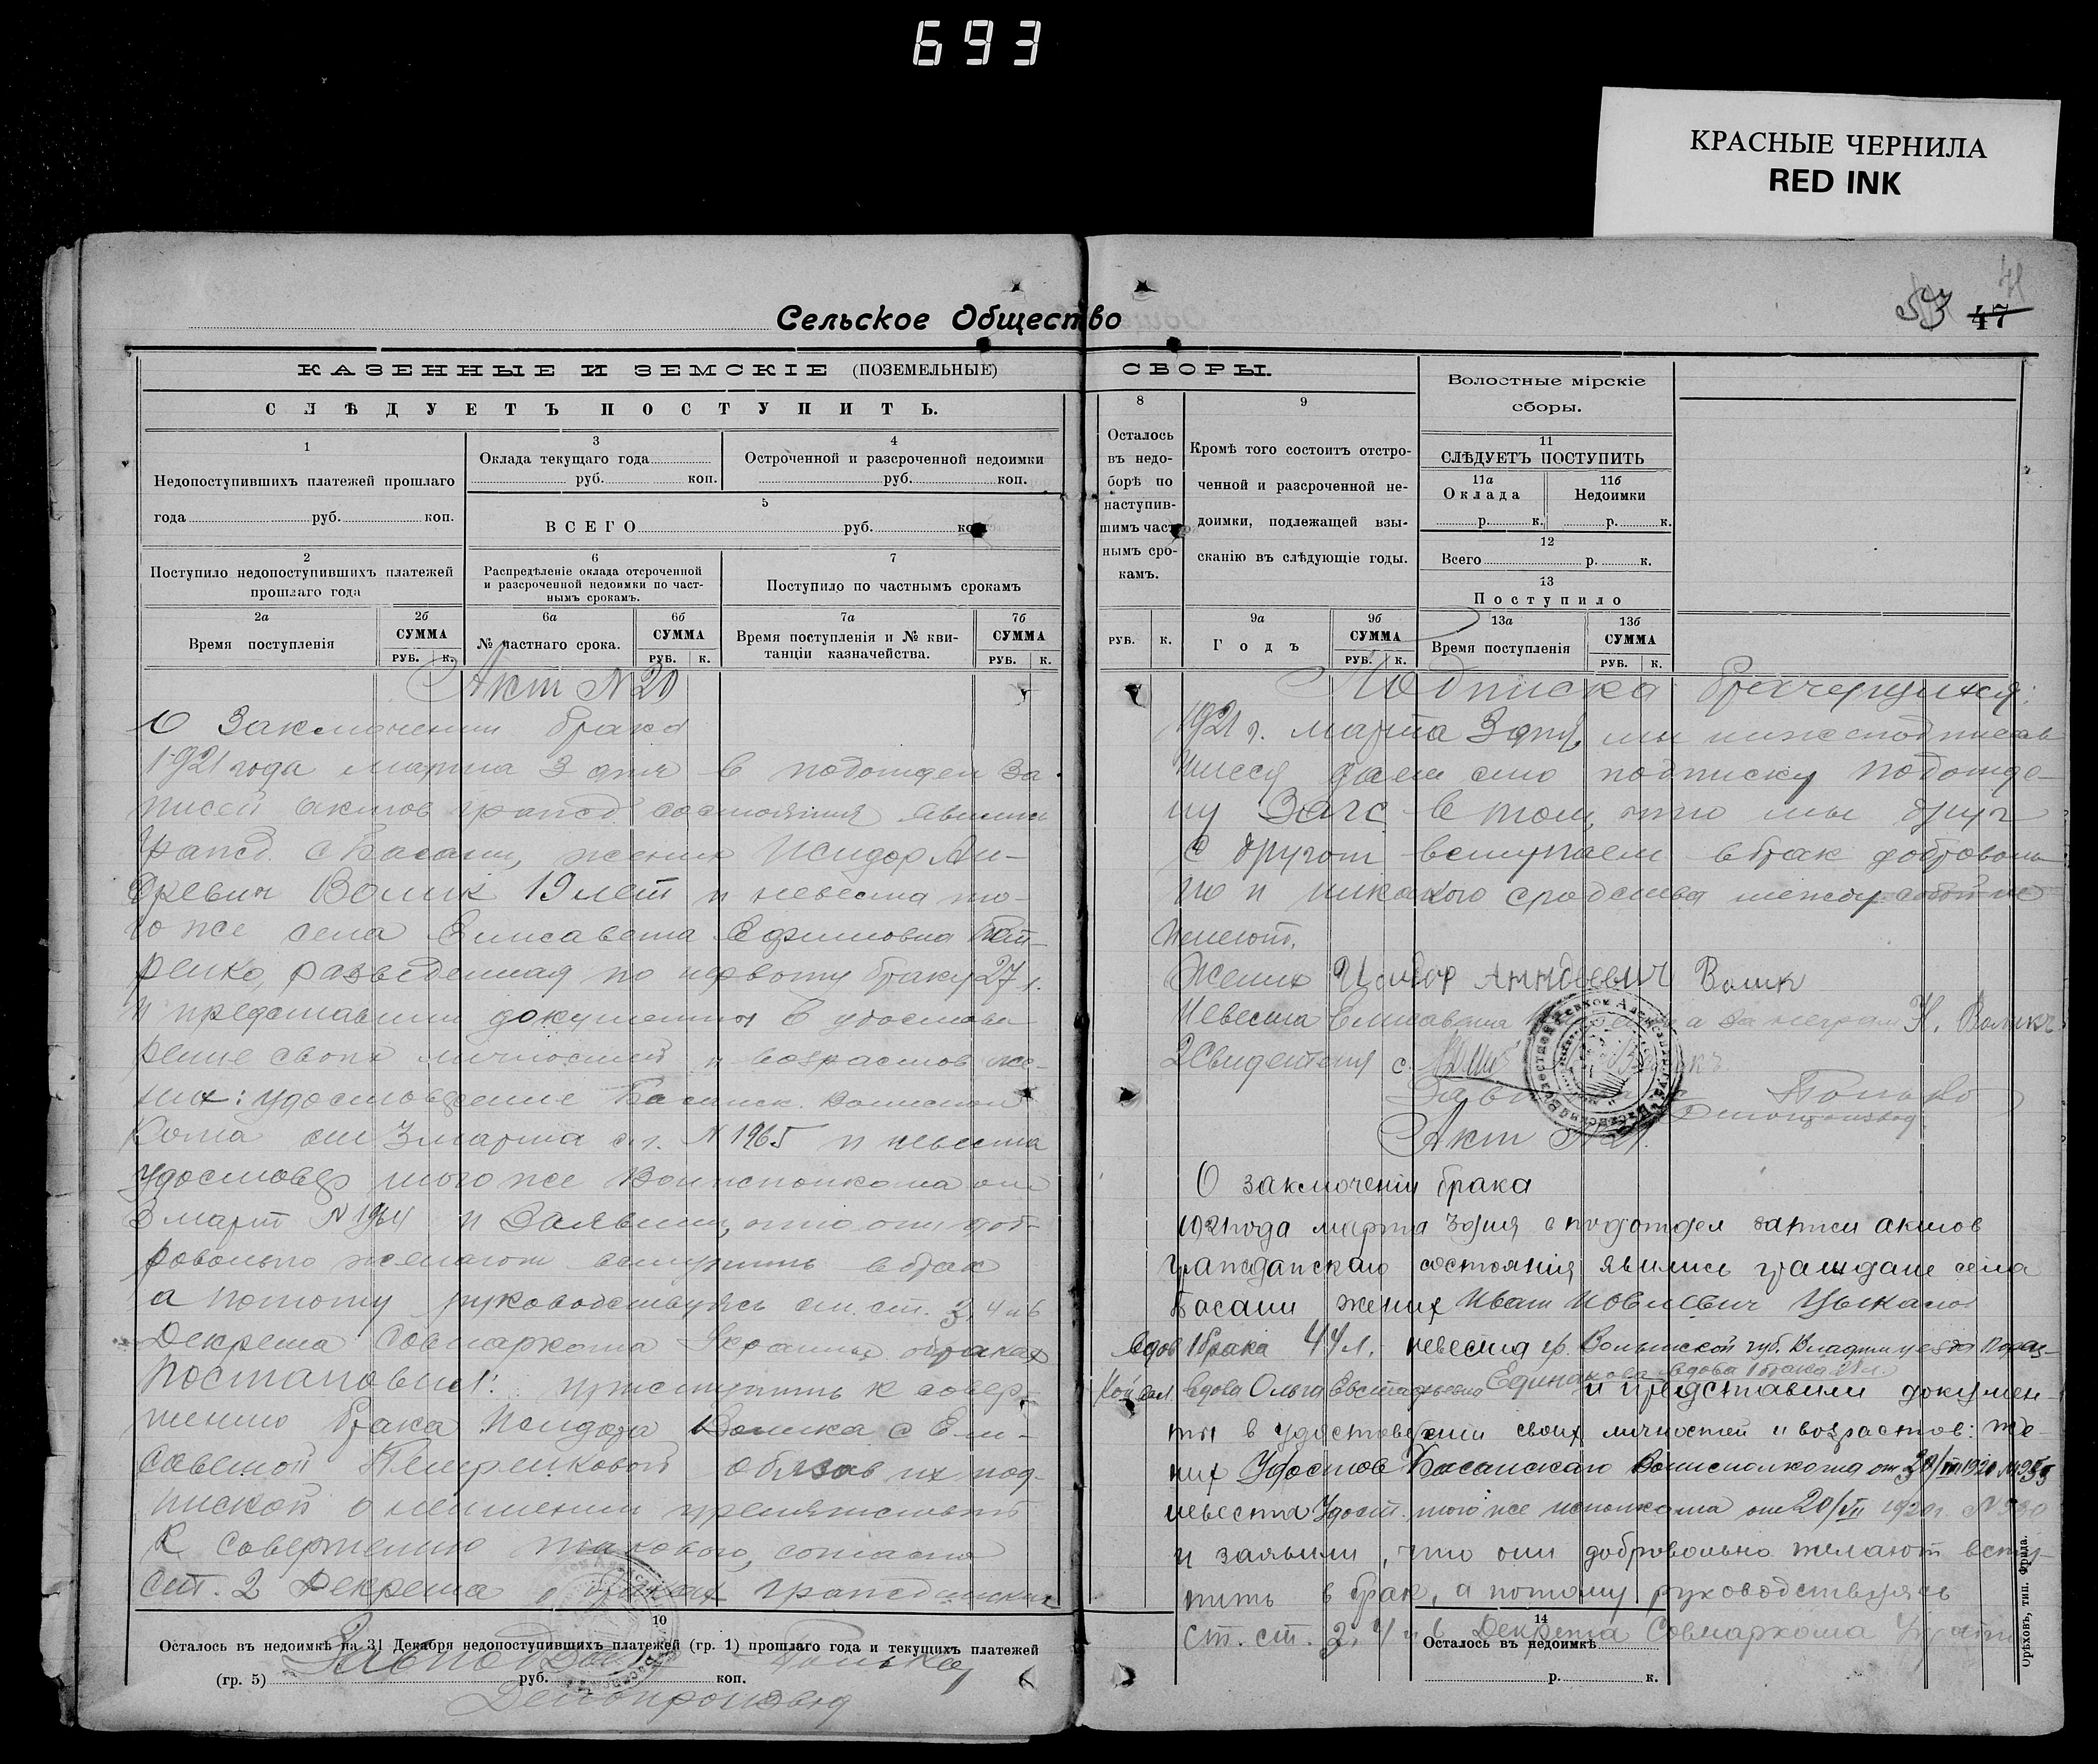 693
КРАСНЫЕ ЧЕРНИЛА
RED INK
53 47
Сельское Общество
КАЗЕННЫЕ И ЗЕМСКІЕ (ПОЗЕМЕЛЬНЫЕ)
СЛѢДУЕТЪ ПОСТУПИТЬ.
1
Недопоступившихъ платежей прошлаго
года руб. коп.
3
Оклада текущаго года
руб. коп.
4
Остроченной и разсроченной недоимки
руб. коп.
5
ВСЕГО руб.
2
Поступило недопоступившихъ платежей
прошлаго года
6
Распредѣленіе оклада отсроченной
и разсроченной недоимки по част-
нымъ срокамъ.
7
Поступило по частнымъ срокамъ
2а
Время поступленія
2б
СУММА
РУБ. К.
6а
№ частнаго срока.
6б
СУММА
РУБ. К.
7а
Время поступленія и № кви-
танціи казначейства.
7б
СУММА
РУБ. К.
Акт N 20
О Заключении брака
1921 года марта 3 дня в подотдел За-
писей актов гражд состояния явились
гражд. с Басани, жених Исидор Ан-
дреевич Волик 19 лет и невеста то-
го же села Елисавета Ефимовна
ренко, разведенная по первому браку 27 л.
и представили документы в удостове-
рение своих личностей и возрастов же-
них: удостоверение Басанск. Волиспол
кома от 3 марта с.г. N 1965 и невеста
удостовер того же Волисполкома от
3 март N 1964 и Заявили, что они доб-
ровольно желают вступить в брак
а потому руководствуясь ст. ст. 3, 4 и 6
Декрета Совнаркома Украины о браках
Постановил: приступить к совер-
шению брака Исидора Волика с Ели-
саветой Петренковой обязав их под-
пиской о неимении препятствий
к совершению такового, согласно
ст. 2 Декрета о браках гражданских
10
Осталось въ недоимкѣ на 31 Декабря недопоступившихъ платежей (гр. 1) прошлаго года и текущихъ платежей
(гр. 5) руб. коп.
Делопроизвод
СБОРЫ.
8
Осталось
въ недо-
борѣ по
наступив-
шимъ част
нымъ сро-
камъ.
РУБ. К.
9
Кромѣ того состоитъ отстро-
ченной и разсроченной не-
доимки, подлежащей взы-
сканію въ слѣдующіе годы.
9а
Годъ
9б
СУММА
РУБ. К.
Волостные мірскіе
сборы.
11
СЛѢДУЕТЪ ПОСТУПИТЬ
11а
Оклада
р. к.
11б
Недоимки
р. к.
12
Всего р. к.
13
Поступило
13а
Время поступленія
13б
СУММА
РУБ. К.
Подписка брачующихся:
1921 г. марта 3 дня, мы нижеподписав
шиеся даем сию подписку подотде-
лу Загс в том, что мы друг
с другом вступаем в брак добровольно
но и никакого сродства между собой не
имеют.
Жених Исидор Андреевич Волик
Невеста Елисавета а за неграм Н. Воликъ
2 Свидетеля
Делопроизвод
Акт N 21.
О заключеніи брака
1921 года марта 3 дня в подотдел записи актов
гражданскаго состояния явились граждане села
Басани жених Иван Иовлевич Цыкало
вдов 1 брака 44 л. невеста гр. Волынской губ. Владим уезда
вдова Ольга Евстафьевна Единакова вдова 1 брака 28 л.
и представили докумен-
ты в удостоверении своих личностей и возрастов: же-
них Удостов Басанскаго Волисполкома от
невеста Удост. того же исполкома от 20/VII 1920 г. N 980
и заявили, что они добровольно желают всту-
пить в брак, а потому руководствуясь
ст. ст. 2, 4 и 6 Декрета Совнаркома Украин
14
Осталось въ недоимкѣ
р. к.
Орѣховъ, тип. Фрида.